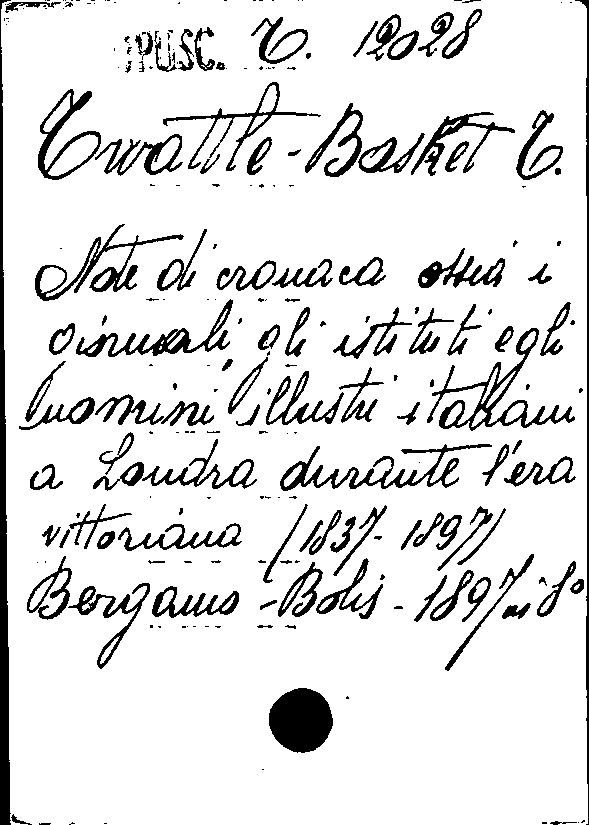 OPUSC. T. 12028
Twattle-Basket T.
Note di cronaca ossia i
giornali, gli istituti e gli
uomini illustri italiani
a Londra durante l'era
vittoriana (1837-1897)
Bergamo - Bolis - 1897 in 8°